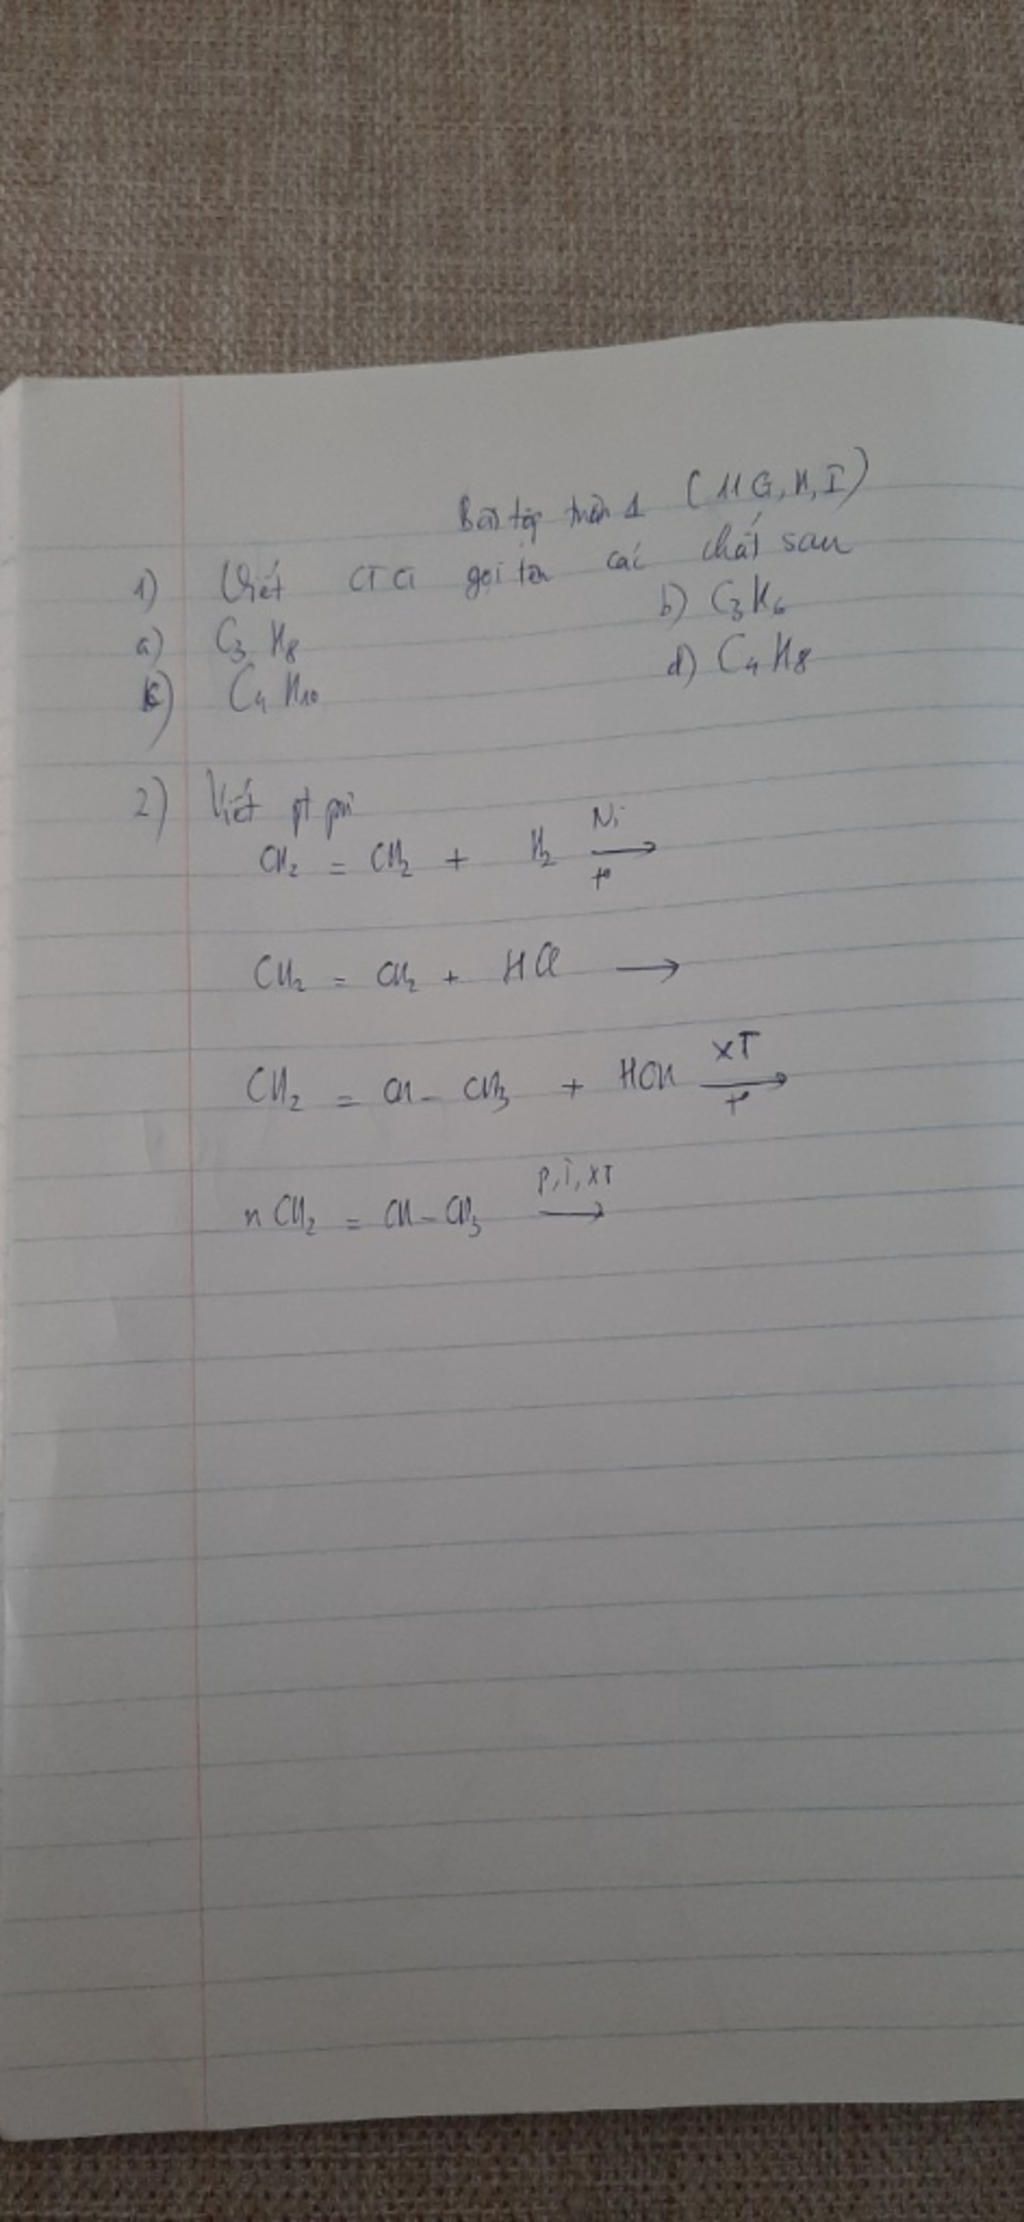 Bài tập tuần 1 (11 G, H, I)
1) Viết CTCT gọi tên các chất sau
a) C₃H₈ b) C₃H₆
c) C₄H₁₀ d) C₄H₈
2) Viết pt pứ
CH₂ = CH₂ + H₂ Ni → t°
CH₂ = CH₂ + HCl →
CH₂ = CH - CH₃ + HOH XT → t°
nCH₂ = CH - CH₃ P, T, XT →